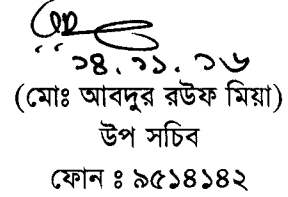 ১৪.১১.১৬
(মোঃ আবদুর রউফ মিয়া)
উপ সচিব
ফোন ঃ ৯৫১৪১৪২